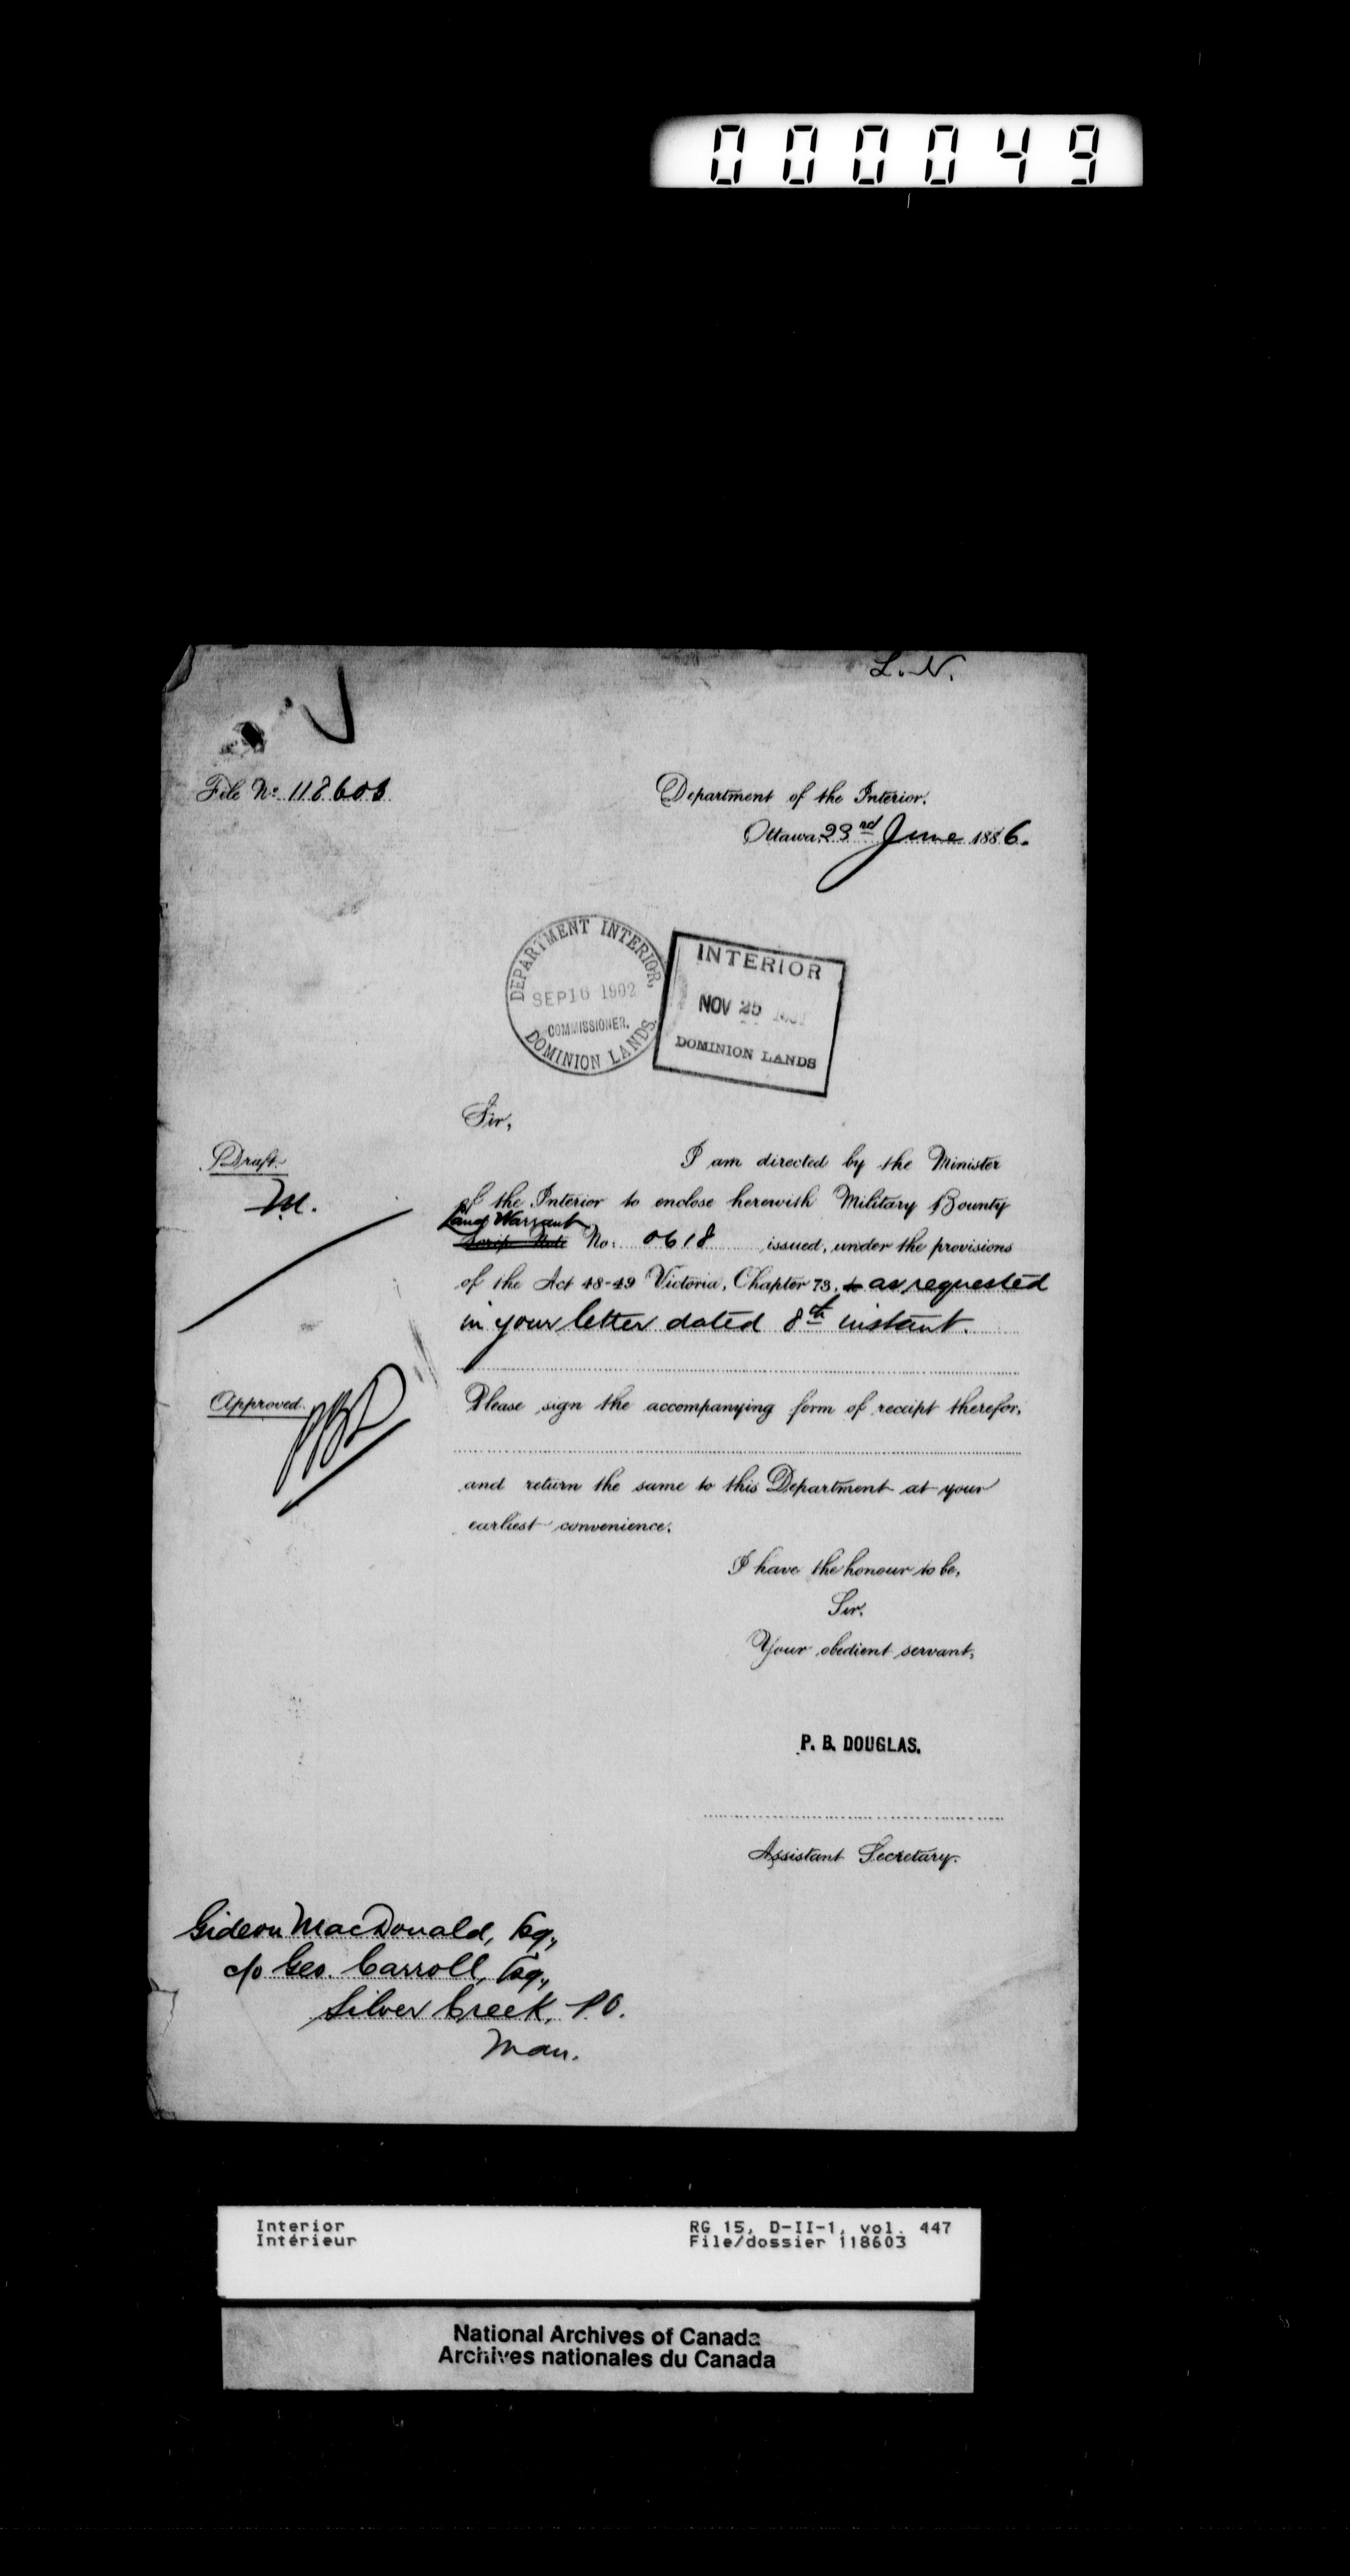 000049
L. N.
File No. 118603
Department of the Interior.
Ottawa, 23rd June 1886.
DEPARTMENT INTERIOR,
SEP 16 1902
COMMISSIONER.
DOMINION LANDS
INTERIOR
NOV 25
DOMINION LANDS
Sir,
Draft.
I am directed by the Minister
M.
of the Interior to enclose herewith Military Bounty
Land Warrant
Scrip Note No. 0618 issued, under the provisions
of the Act 48-49 Victoria, Chapter 73, to as requested
in your letter dated 8th instant.
Approved.
PBD
Please sign the accompanying form of receipt therefor,
and return the same to this Department at your
earliest convenience.
I have the honour to be,
Sir,
Your obedient servant,
P. B. DOUGLAS.
Assistant Secretary.
Gideon MacDonald, Esq.,
c/o Geo. Carroll, Esq.,
Silver Creek, P.O.
Man.
Interior RG 15, D-II-1, vol. 447
Intérieur File/dossier 118603
National Archives of Canada
Archives nationales du Canada